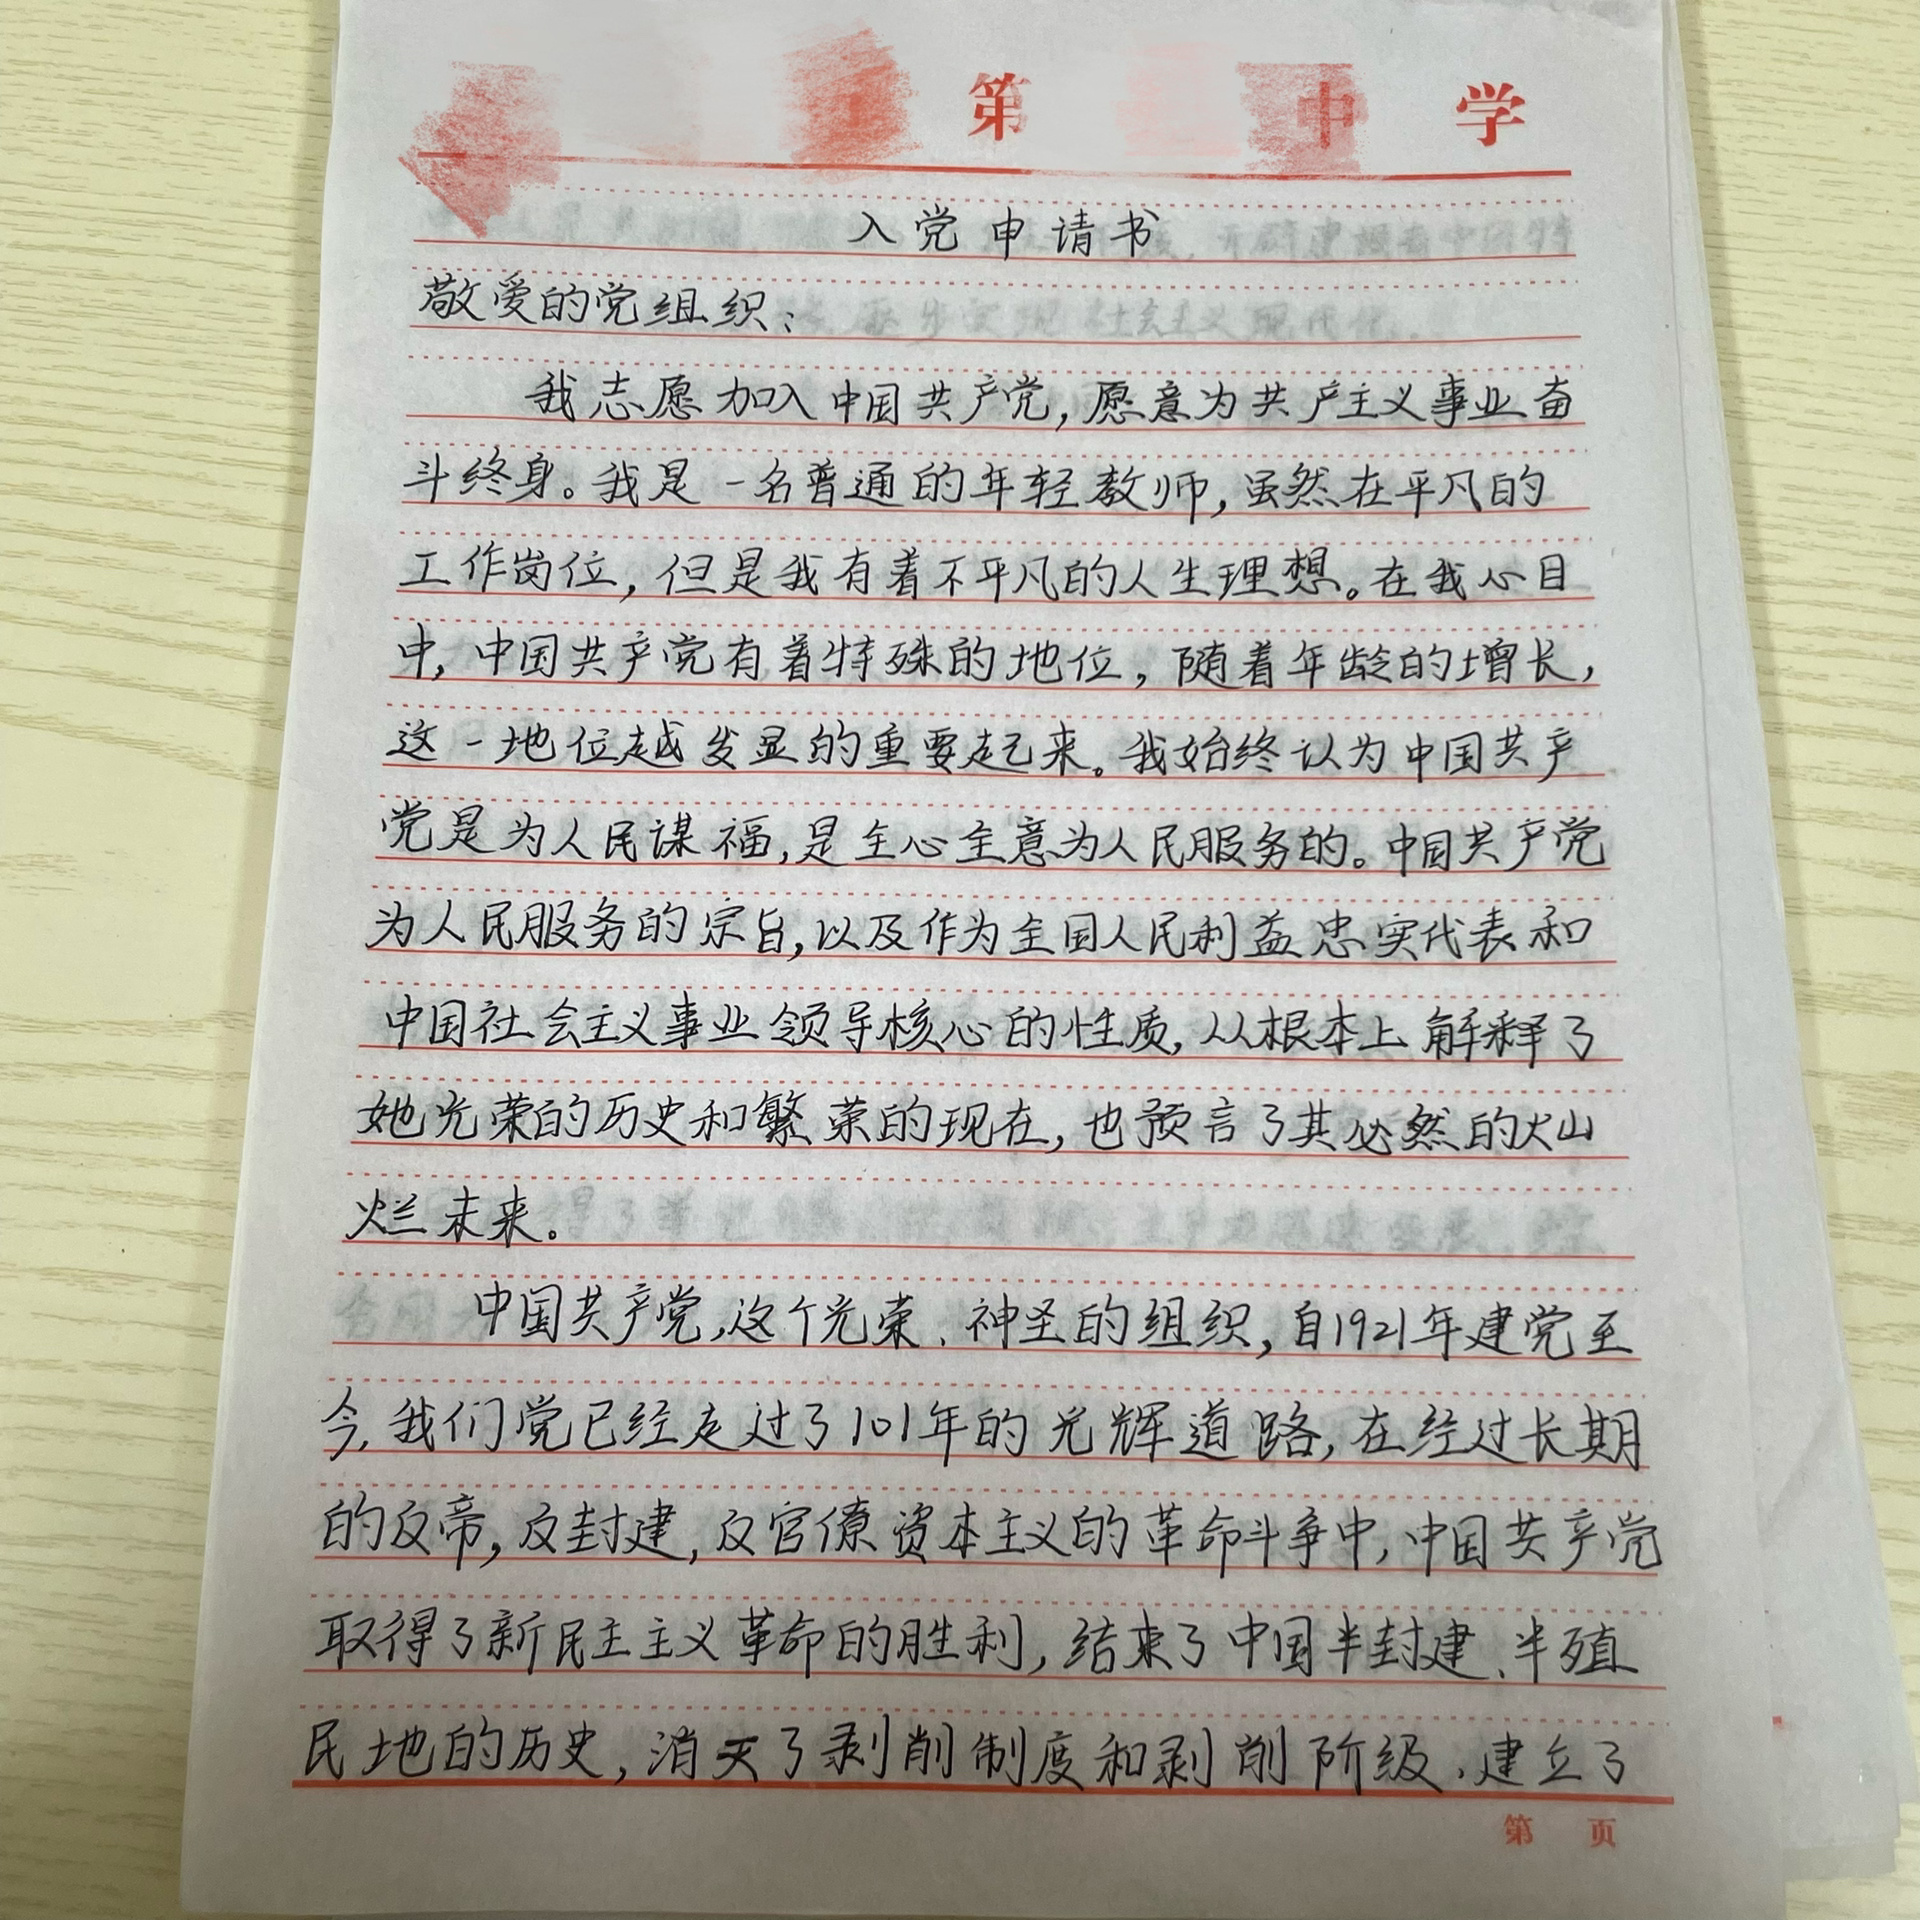 第 中 学
入党申请书
敬爱的党组织：
我志愿加入中国共产党，愿意为共产主义事业奋
斗终身。我是一名普通的年轻教师，虽然在平凡的
工作岗位，但是我有着不平凡的人生理想。在我心目
中，中国共产党有着特殊的地位，随着年龄的增长，
这一地位越发显的重要起来。我始终认为中国共产
党是为人民谋福，是全心全意为人民服务的。中国共产党
为人民服务的宗旨，以及作为全国人民利益忠实代表和
中国社会主义事业领导核心的性质，从根本上解释了
她光荣的历史和繁荣的现在，也预言了其必然的灿
烂未来。
中国共产党，这个光荣、神圣的组织，自1921年建党至
今，我们党已经走过了101年的光辉道路，在经过长期
的反帝，反封建，反官僚资本主义的革命斗争中，中国共产党
取得了新民主主义革命的胜利，结束了中国半封建、半殖
民地的历史，消灭了剥削制度和剥削阶级，建立了
第 页